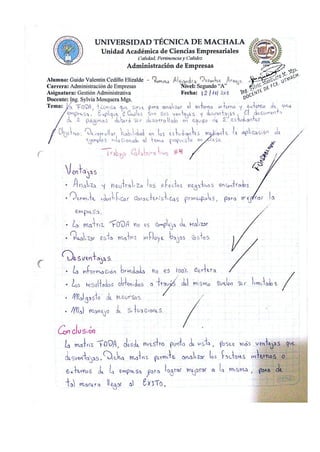 UNIVERSIDAD TÉCNICA DE MACHALA
Unidad Académica de Ciencias Empresariales
Calidad, Pertinencia y Calidez
Administración de Empresas
Alumno: Guido Valentín Cedillo Elizalde - Alejandra
Carrera: Administración de Empresas Nivel: Segundo "A"
Asignatura: Gestión Administrativa Fecha:
Docente: Ing. Sylvia Mosquera Mgs. DOCENTE FCE UTMACH
Tema: La FODA, técnica que sirve para analizar el entorno interno y externo de una
empresa. Explique Cuáles son sus ventajas y desventajas. El documento
de 2 páginas deberá ser desarrollado en equipo de 2 estudiantes
Objetivo: Desarrollar habilidad en los estudiantes mediante la aplicación de
ejemplos relacionado al tema propuesto en clase.
Trabajo Colaborativo #4
Ventajas
• Analiza y neutraliza los efectos negativos encontrados
• Permite identificar características principales, para mejorar la
empresa.
• La matriz FODA no es compleja de realizar
• Realizar esta matriz influye bajos costos.
Desventajas
• La información brindada no es 100% certera
• Los resultados obtenidos a través del mismo suelen ser limitados
• Malgasto de recursos
• Mal manejo de situaciones
Conclusión
La matriz FODA, desde nuestro punto de vista, posee más ventajas que
desventajas. Dicha matriz permite analizar los factores internos o
externos de la empresa para lograr mejorar a la misma, para de
tal manera llegar al ÉXITO.